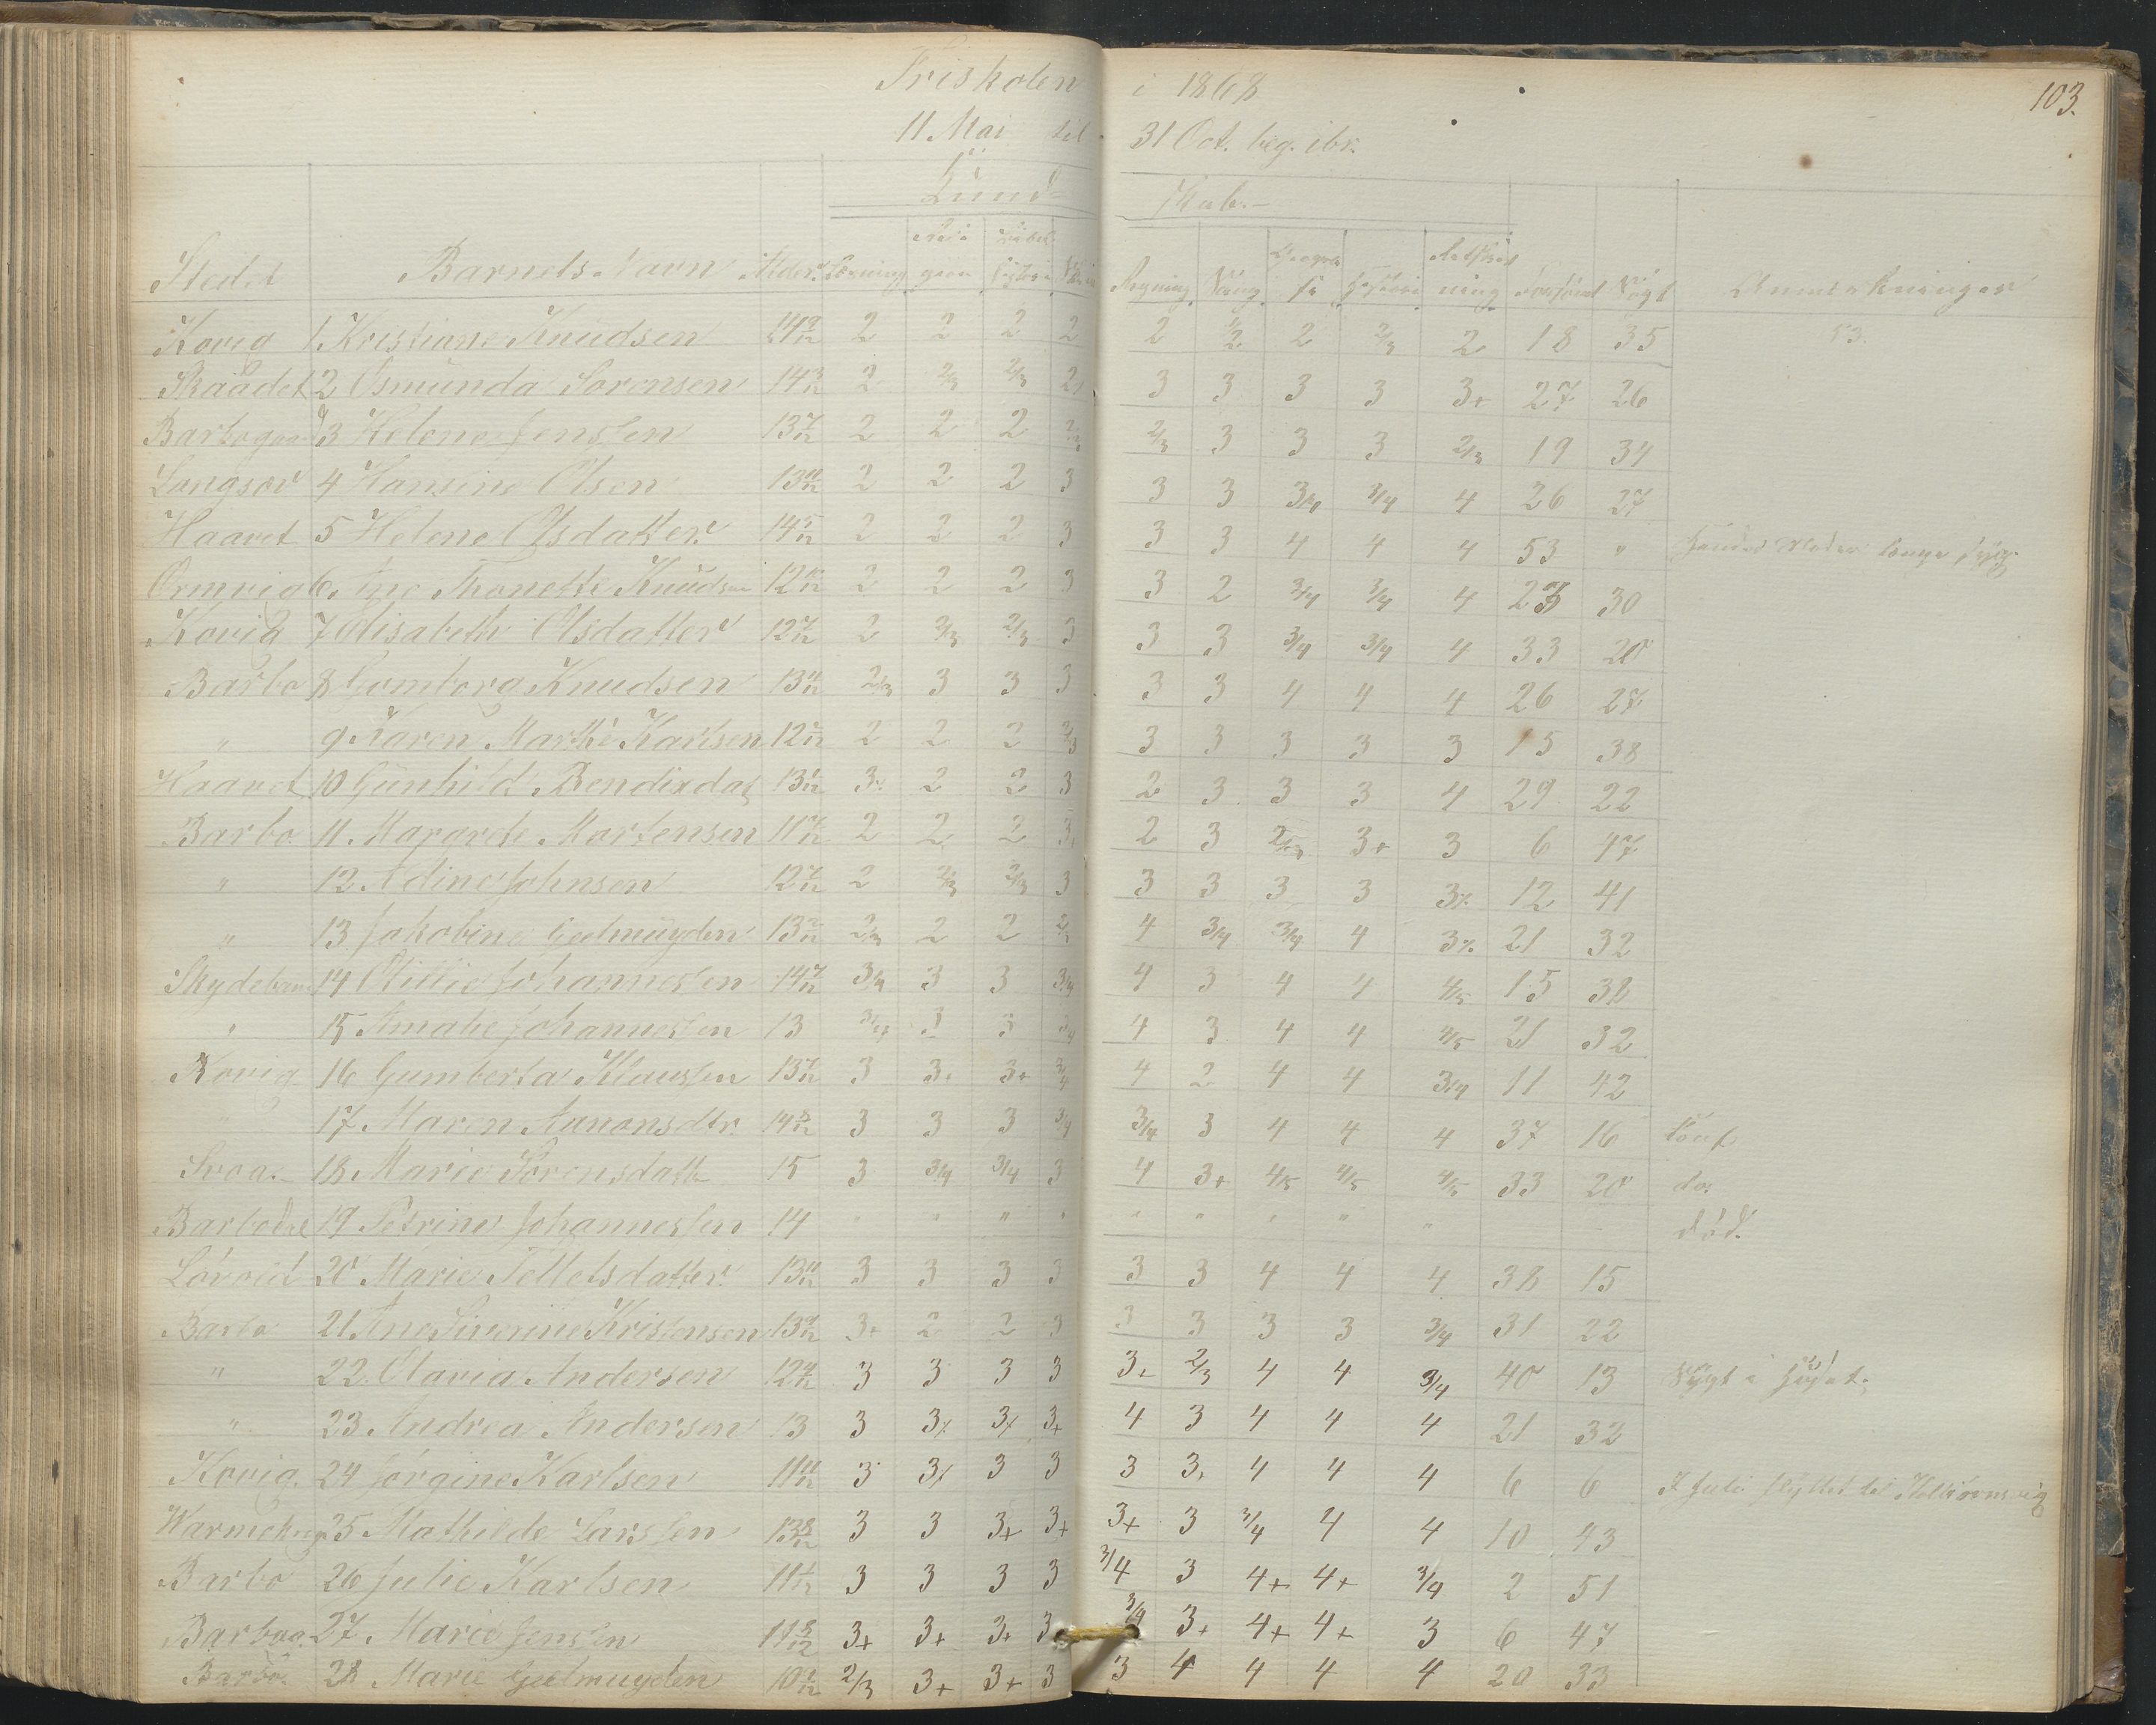 Friskolen i 1868
103.
11 Mai til 31 Oct. beg. ibr.
Kund- skab.-
Stedet Barnets Navn Alder. Læsning Reli gion Bibel historie Skriv Regning Sang Geogra fi Historie Retskriv ning Forsømt Søgt Anmærkninger
Kovig 1. Kristiane Knudsen 14 9/12 2 2 2 2 2 1/2 2 2/3 2 18 35 53.
Skaadet 2 Osmunda Sorensen 14 3/12 2 2/3 2/3 2/ 3 3 3 3 3+ 27 26
Barbogaard 3 Helene Jenssen 13 7/12 2 2 2 2/3 2/3 3 3 3 2/3 19 34
Langsæv 4 Hansine Olsen 13 11/12 2 2 2 3 3 3 3/4 3/4 4 26 27
Haavet 5 Helene Olsdatter 14 5/12 2 2 2 3 3 3 4 4 4 53 " Hendes Moder længe syg.
Ormvig 6. Ane Thonette Knudsen 12 10/12 2 2 2 3 3 2 3/4 3/4 4 23 30
Kovig 7 Elisabeth Olsdatter 12 7/12 2 2/3 2/3 3 3 3 3/4 3/4 4 33 20
Barbo 8 Gomborg Knudsen 13 11/12 2/3 3 3 3 3 3 4 4 4 26 27
" 9 Karen Marthe Karlsen 12 5/12 2 2 2 2/3 3 3 3 3 3 15 38
Haavet 10 Gunhild Bendixdat 13 1/12 3. 2 2 3 2 3 3 3 4 29 22
Barbo. 11. Margrete Mortensen 11 7/12 2 2 2 3+ 2 3 2/3 3+ 3 6 47
" 12. Adine Johnsen 12 7/12 2 2/3 2/3 3 3 3 3 3 3% 12 41
" 13. Jakobine Geelmuyden 13 2/12 2/3 2 2 2/3 4 3/4 3/4 4 3% 21 32
14 Otillie Johannessen 14 7/12 3/4 3 3 3/4 4 3 4 4 4/5 15 38
" 15 Amalie Johannessen 13 3/4 3 3 3/4 4 3 4 4 4/5 21 32
Kovig 16 Gumberta Klaussen 13 7/12 3 3+ 3+ 3/4 4 2 4 4 3/4 11 42
" 17. Maren Aanonsdtr. 14 5/12 3 3 3 3/4 3/4 3 4 4 4 37 16 Konf.
18 Marie Sorensdatter 15 3 3/4 3/4 3 4 3+ 4/5 4/5 4/5 33 20 do.
Barbodal 19 Petrine Johannessen 14 " " " " " " " " " død.
20 Marie Tellefsdatter. 13 11/12 3 3 3 3 3 3 4 4 4 38 15
Barbo 21 Ane Siverine Kristensen 13 9/12 3+ 2 2 3 3 3 3 3 3/4 31 22
" 22. Olavia Andersen 12 4/12 3 3 3 3 3+ 2/3 4 4 3/4 40 13
" 23 Andrea Andersen 13 3 3% 3% 3+ 4 3 4 4 4 21 32
Kovig. 24 Jørgine Karlsen 11 11/12 3 3% 3 3 3 3+ 4 4 4 6 6 I Juli flyttet til Kolbiørnsvig
25 Mathilde Larssen 13 8/12 3 3 3+ 3+ 3+ 3 3/4 4 4 10 43
Barbo 26 Julie Karlsen 11 1/12 3 3 3 3 3/4 3 4+ 4+ 3/4 2 51
Barboga. 27 Marie Jenssen 11 8/12 3+ 3+ 3+ 3 3/4 3+ 4+ 4+ 3 6 47
Barbo. 28 Marie Geelmuyden 10 1/12 2/3 3+ 3+ 3 3 4 4 4 4 20 33